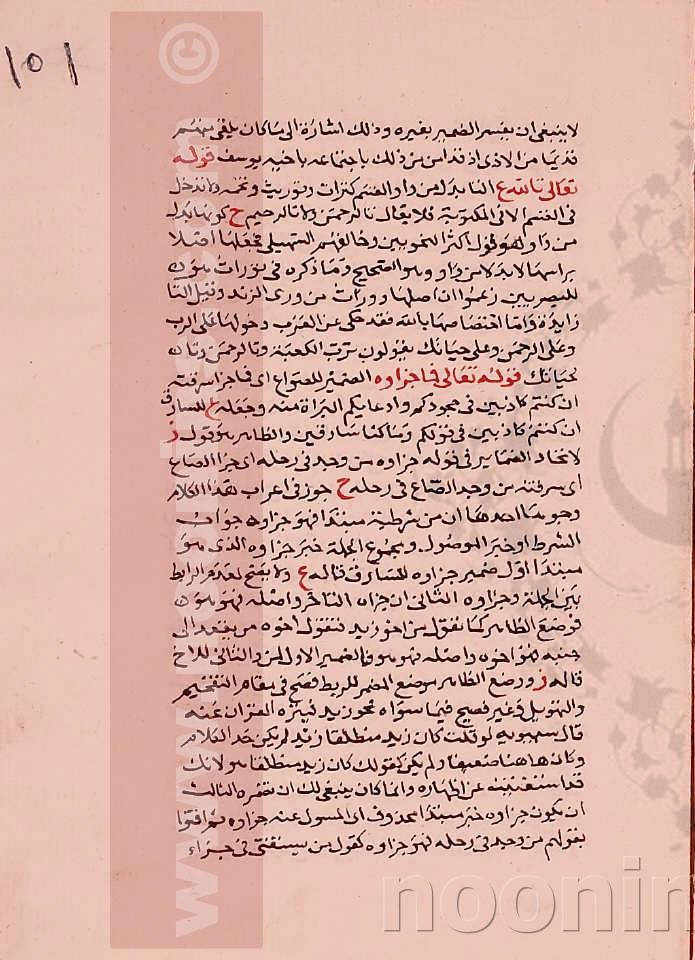 ١٥١
لا ينبغي ان يفسر الضمير بغيره وذلك اشارة الى ما كان يلقى منهم
قديما من الاذى اذ قد امن من ذلك باجتماعه باخيه يوسف قوله
تعالى تالله ع التا بدل من واو القسم كتراث وتورية وتخمة ولا تدخل
في القسم الا في المكتوبة فلا يقال تالرحمن ولا تالرحيم ح كونها بدل
من واو هو قول اكثر النحويين وخالفهم السهيلي فجعلها اصلا
براسها لا بدلا من واو وهو الصحيح وما ذكره في تورات هو
للبصريين زعموا ان اصلها وورات من ورى الزند وقيل التا
زايدة واما اختصاصها بالله فقد حكي عن العرب دخولها على الرب
وعلى الرحمن وعلى حياتك يقولون ترب الكعبة وتالرحمن
تحياتك قوله تعالى فما جزاوه الضمير للصواع اى فما جزا سرقته
ان كنتم كاذبين في جحودكم وادعايكم البراة منه وجعله ع للسارق
ان كنتم كاذبين في قولكم وما كنا سارقين والظاهر هو قول ز
لاتحاد الضماير في قوله جزاوه من وجد في رحله اى جزا الصاع
اى سرقته من وجد الصاع في رحله ح جوز في اعراب هذا الكلام
وجوها احدها ان من شرطية مبتدا فهو جزاوه جواب
الشرط او خبر الموصول ومجموع الجملة خبر جزاوه الذي هو
مبتدا اول ضمير جزاوه للسارق قاله ع ولا يصح لعدم الرابط
بين الجملة وجزاوه الثاني ان جزاه واصله فهو هو
فوضع الظاهر كما تقول من اخو زيد فتقول اخوه من يقعد الى
جنبه فهو اخوه واصله فهو هو فالضمير الاول لمن والثاني للاخ
قاله ز ووضع الظاهر موضع المضمر للربط فصيح في مقام التفخيم
والتهويل وغير فصيح فيما سواه نحو زيد فينزه القران عنه
قال سيبويه لو قلت كان زيد منطلقا زيد لم يكن حد الكلام
وكان هاهنا ضعيفا ولم يكن كقولك كان زيد منطلقا هو لانك
قد استغنيت عن اظهاره وانما كان ينبغي لك ان تضمره الثالث
ان يكون جزاوه خبر مبتدا محذوف اى المسول عنه جزاوه ثم افتوا
بقولهم من وجد في رحله فهو جزاوه كقول من يستفتى في جزاء
www.
©
noonin